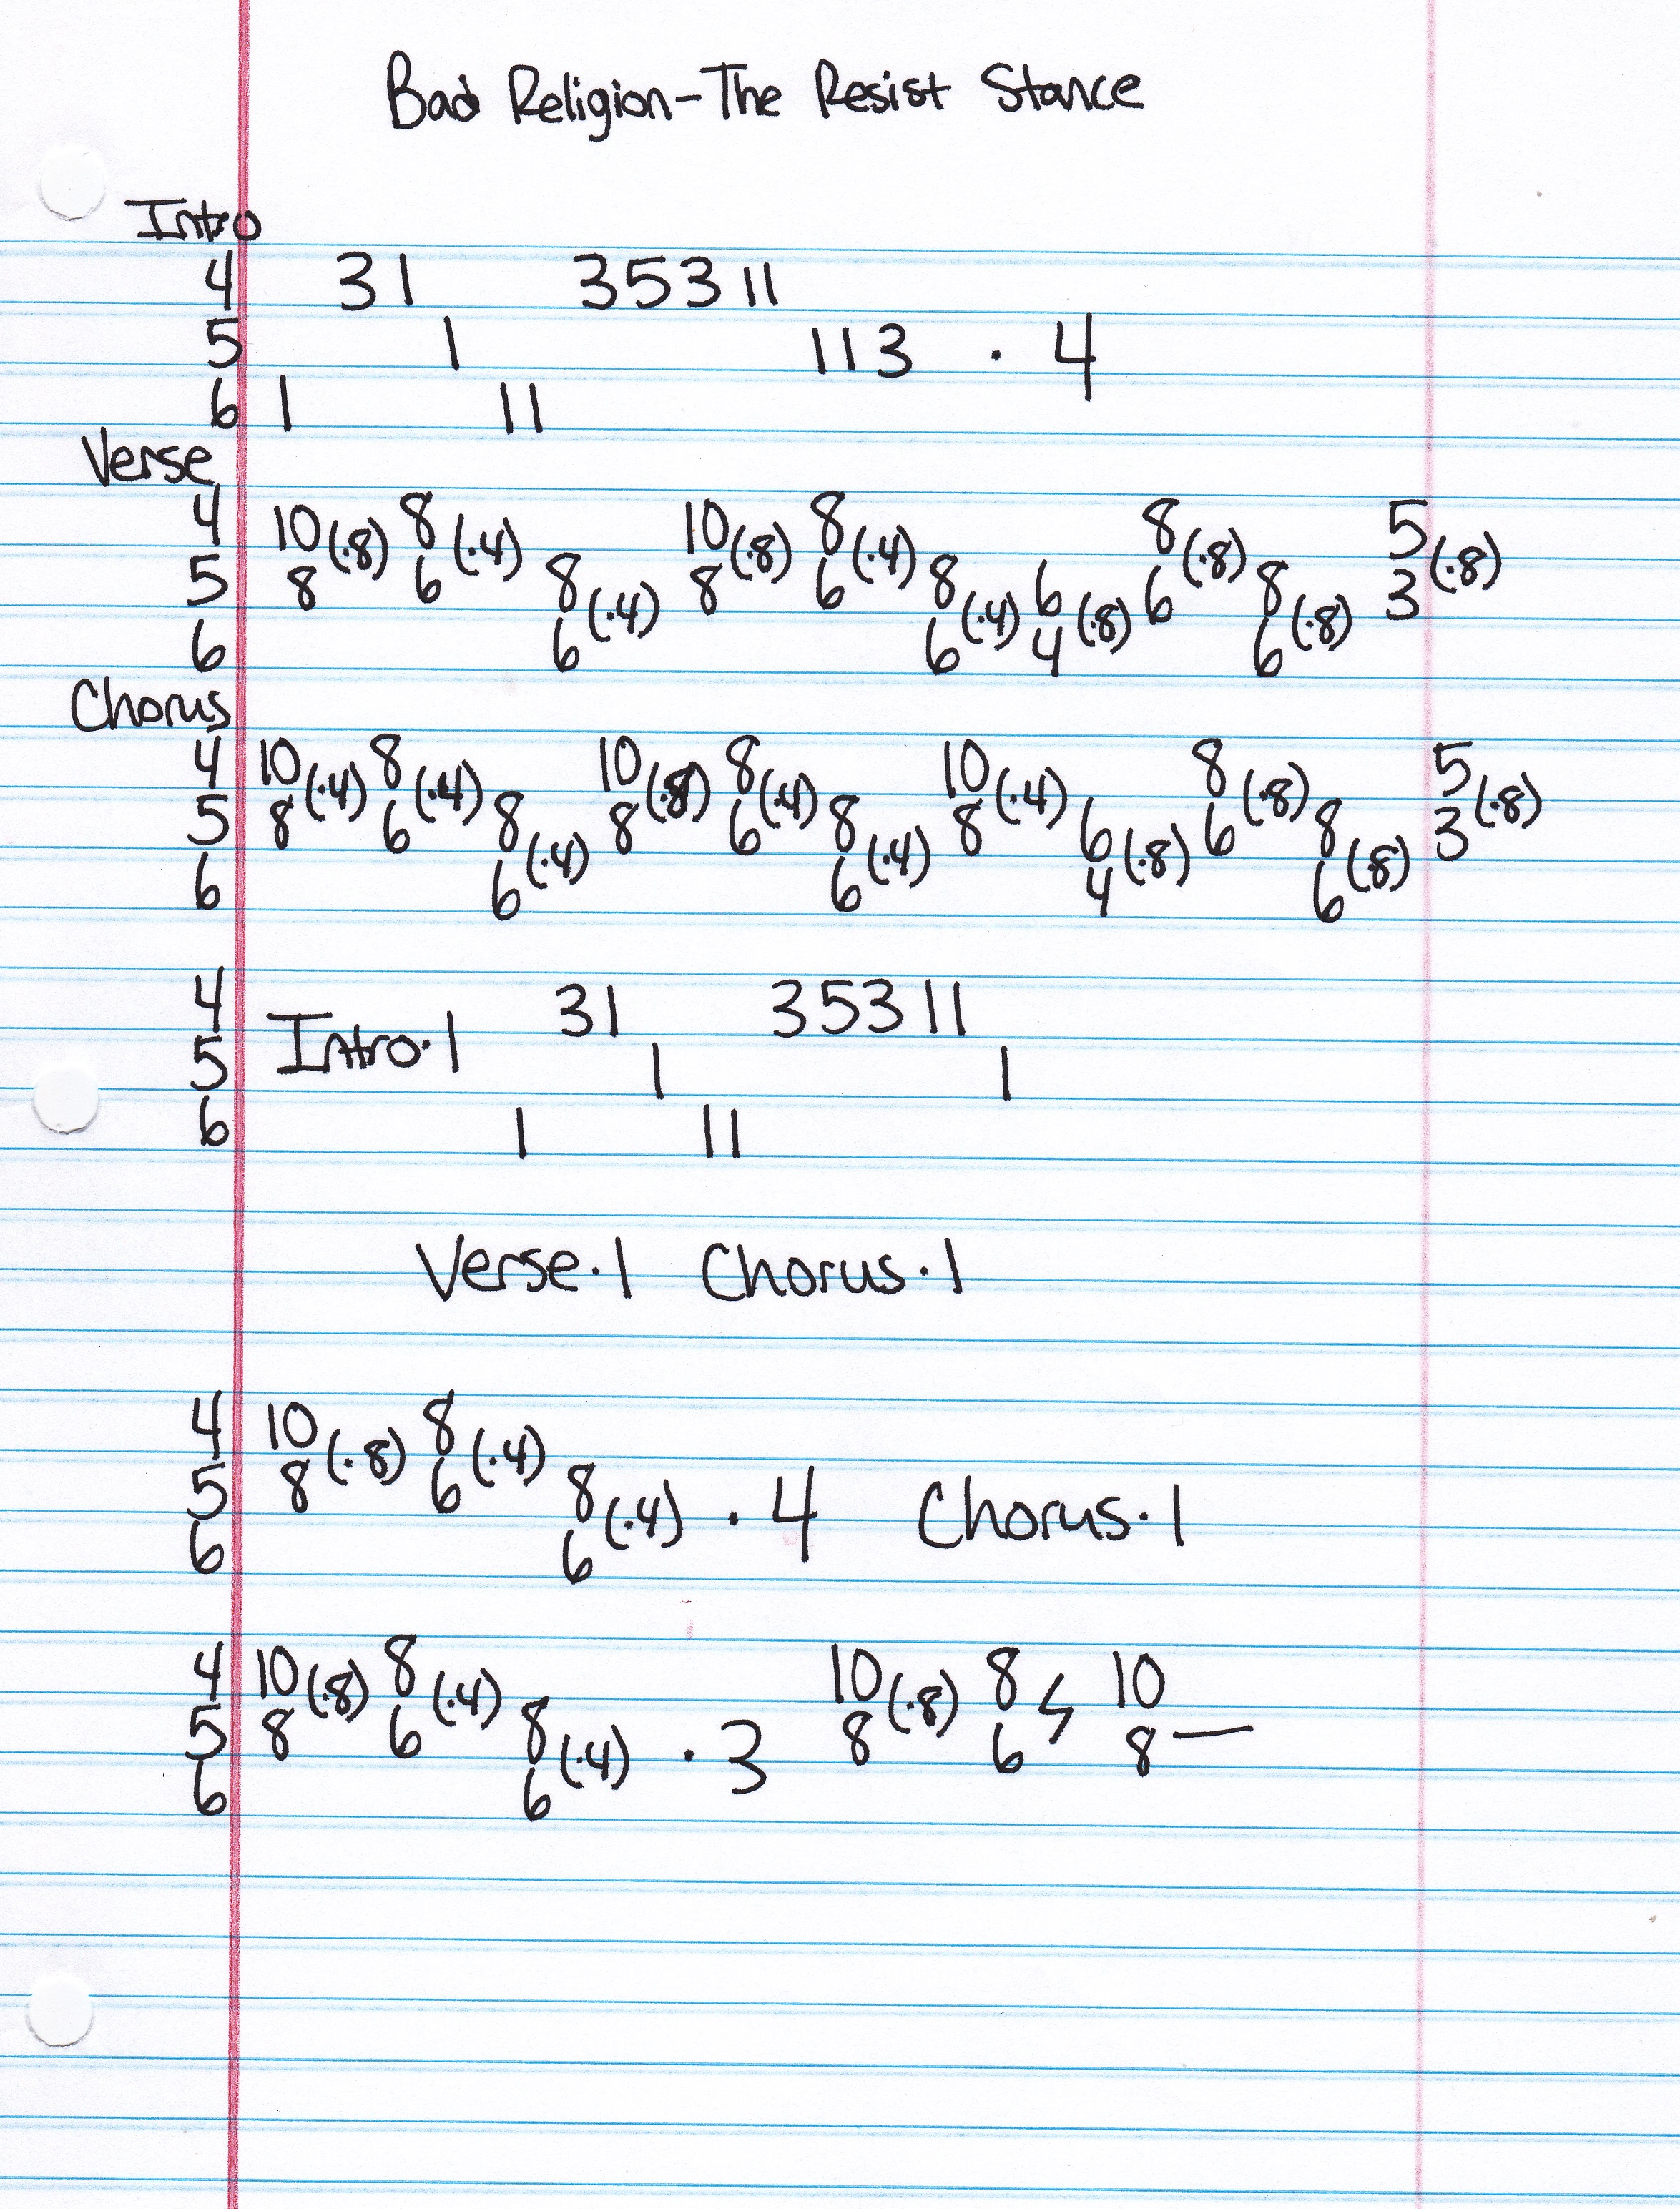 Bad Religion-The Resist Stance
Intro
4 31 35311
5 1 113 · 4
6 1 11
Verse
4 10(·8) 8(·4) 10(·8) 8(·4) 8(·8) 5(·8)
5 8 6 8(·4) 8 6 8(·4) 6(·8) 6 8(·8) 3
6 6 6 4 6
Chorus
4 10(·4) 8(·4) 10(·8) 8(·4) 10(·4) 8(·8) 5(·8)
5 8 6 8(·4) 8 6 8(·4) 8 6(·8) 6 8(·8) 3
6 6 6 4 6
4 31 35311
5 Intro·1 1 1
6 1 11
Verse·1 Chorus·1
4 10(·8) 8(·4)
5 8 6 8(·4) · 4 Chorus·1
6 6
4 10(·8) 8(·4) 10(·8) 8 10
5 8 6 8(·4) · 3 8 6 8—
6 6